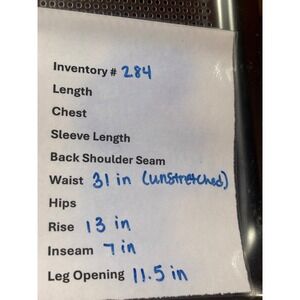 Inventory # 284
Length
Chest
Sleeve Length
Back Shoulder Seam
Waist 31 in (unstretched)
Hips
Rise 13 in
Inseam 7 in
Leg Opening 11.5 in